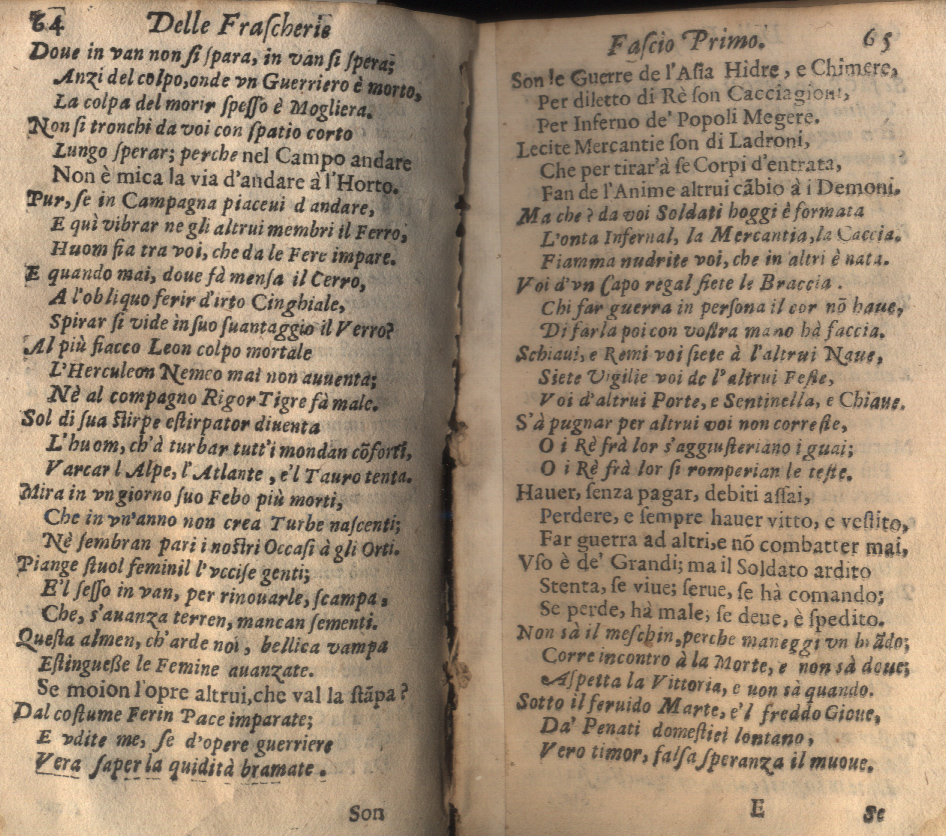 64 Delle Frascherie
Doue in van non si spara, in van si spera;
Anzi del colpo, onde vn Guerriero è morto,
La colpa del morir spesso è Mogliera.
Non si tronchi da voi con spatio corto
Lungo sperar; perche nel Campo andare
Non è mica la via d'andare à l'Horto.
Pur, se in Campagna piaceui d andare,
E quì vibrar ne gli altrui membri il Ferro,
Huom sia tra voi, che da le Fere impare.
E quando mai, doue fà mensa il Cerro,
A l'obliquo ferir d'irto Cinghiale,
Spirar si vide in suo suantaggio il Verro?
Al più fiacco Leon colpo mortale
L'Herculeon Nemeo mai non auuenta;
Nè al compagno Rigor Tigre fà male.
Sol di sua stirpe estirpator diuenta
L'huom, ch'à turbar tutt'i mondan cõforti,
Varcar l Alpe, l'Atlante, e'l Tauro tenta.
Mira in vn giorno suo Febo più morti,
Che in vn'anno non crea Turbe nascenti;
Nè sembran pari i nostri Occasi à gli Orti.
Piange stuol feminil l'vccise genti;
E'l sesso in van, per rinouarle, scampa,
Che, s'auanza terren, mancan sementi.
Questa almen, ch'arde noi, bellica vampa
Estinguesse le Femine auanzate.
Se moion l'opre altrui, che val la stãpa?
Dal costume Ferin Pace imparate;
E vdite me, se d'opere guerriere
Vera saper la quidità bramate.
Son
Fascio Primo. 65
Son le Guerre de l'Asia Hidre, e Chimere,
Per diletto di Rè son Cacciagioni,
Per Inferno de' Popoli Megere.
Lecite Mercantie son di Ladroni,
Che per tirar'à se Corpi d'entrata,
Fan de l'Anime altrui cãbio à i Demoni.
Ma che? da voi Soldati hoggi è formata
L'onta Infernal, la Mercantia, la Caccia.
Fiamma nudrite voi, che in altri è nata.
Voi d'vn Capo regal siete le Braccia.
Chi far guerra in persona il cor nõ haue,
Di farla poi con vostra mano hà faccia.
Schiaui, e Remi voi siete à l'altrui Naue,
Siete Vigilie voi de l'altrui Feste,
Voi d'altrui Porte, e Sentinella, e Chiaue.
S'à pugnar per altrui voi non correste,
O i Rè frà lor s'aggiusteriano i guai;
O i Rè frà lor si romperian le teste.
Hauer, senza pagar, debiti assai,
Perdere, e sempre hauer vitto, e vestito,
Far guerra ad altri, e nõ combatter mai,
Vso è de' Grandi; ma il Soldato ardito
Stenta, se viue; serue, se hà comando;
Se perde, hà male, se deue, è spedito.
Non sà il meschin, perche maneggi vn brãdo;
Corre incontro à la Morte, e non sà doue;
Aspetta la Vittoria, e uon sà quando.
Sotto il feruido Marte, e'l freddo Gioue,
Da' Penati domestici lontano,
Vero timor, falsa speranza il muoue.
E Se